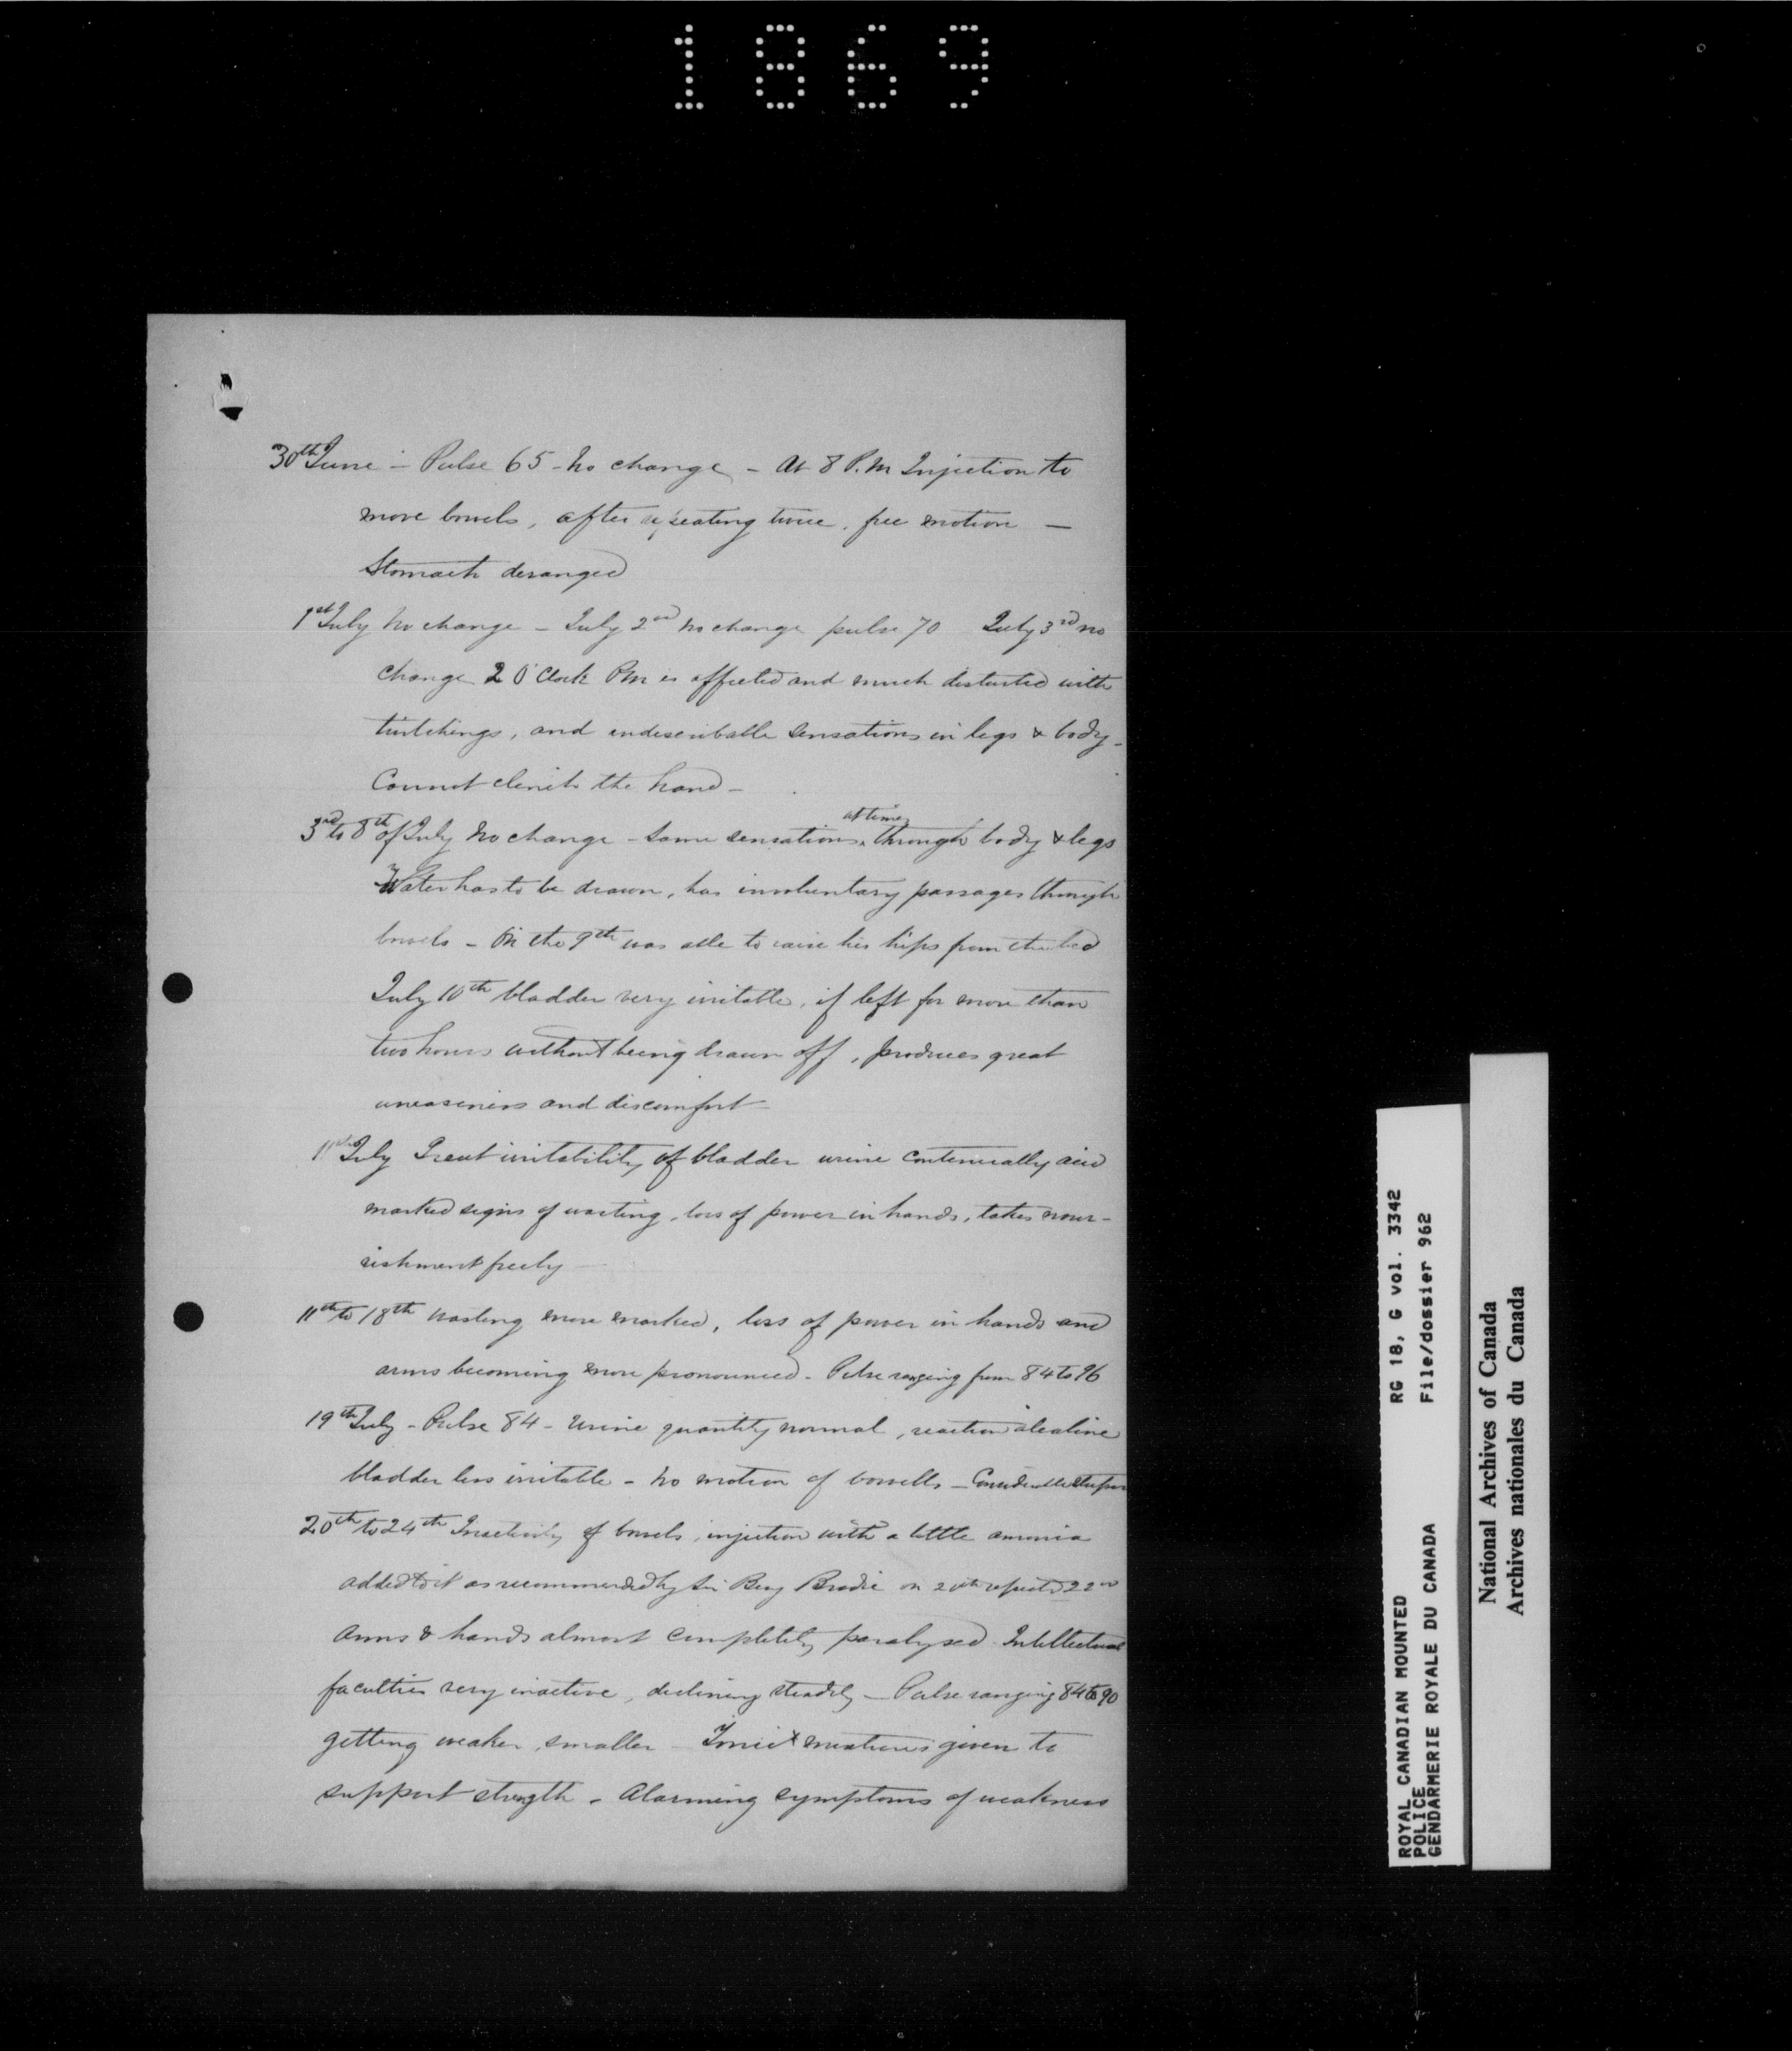 1869
30th June - Pulse 65 - No change - At 8 P.M Injection to
move bowels, after repeating twice, free motion —
Stomach deranged
1st July No change - July 2nd no change pulse 70 July 3rd no
change 2 O'Clock PM is affected and much disturbed with
twitchings, and indescribable sensations in legs & body -
Cannot clinch the hand -
at times
3rd to 8th of July No change - Same sensations through body & legs
Water has to be drawn, has involuntary passages through
bowels - On the 9th was able to raise his hips from the bed
July 10th bladder very irritable, if left for more than
two hours without being drawn off, produces great
uneasiness and discomfort
11th July Great irritability of bladder urine continually acid
marked signs of wasting, loss of power in hands, takes nour-
rishment freely
11th to 18th Wasting more marked, loss of power in hands and
arms becoming more pronounced - Pulse ranging from 84 to 96
19th July - Pulse 84 - Urine quantity normal, reaction alcaline
bladder less irritable - No motion of bowells - Considerable stupor
20th to 24th Inactivity of bowels, injection with a little amonia
added to it as recommended by Sir Benj Brodie on 20th repeated 22nd
Arms & hands almost completely paralysed Intellectual
faculties very inactive, declining steadily - Pulse ranging 84 to 90
getting weaker, smaller given to
support strength - Alarming symptoms of weakness
ROYAL CANADIAN MOUNTED RG 18, G vol. 3342
POLICE File/dossier 962
GENDARMERIE ROYALE DU CANADA
National Archives of Canada
Archives nationales du Canada